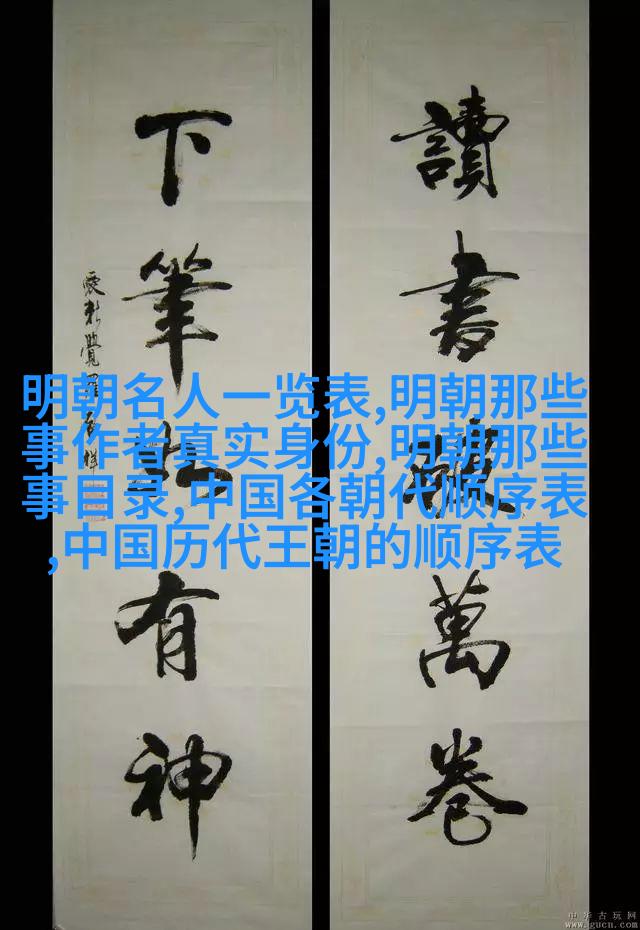 讀書破萬卷
下筆如有神
愛新覺羅
明朝名人一览表,明朝那些
事作者真实身份,明朝那些
事目录,中国各朝代顺序表
,中国历代王朝的顺序表
中华古玩网
www.gucn.com